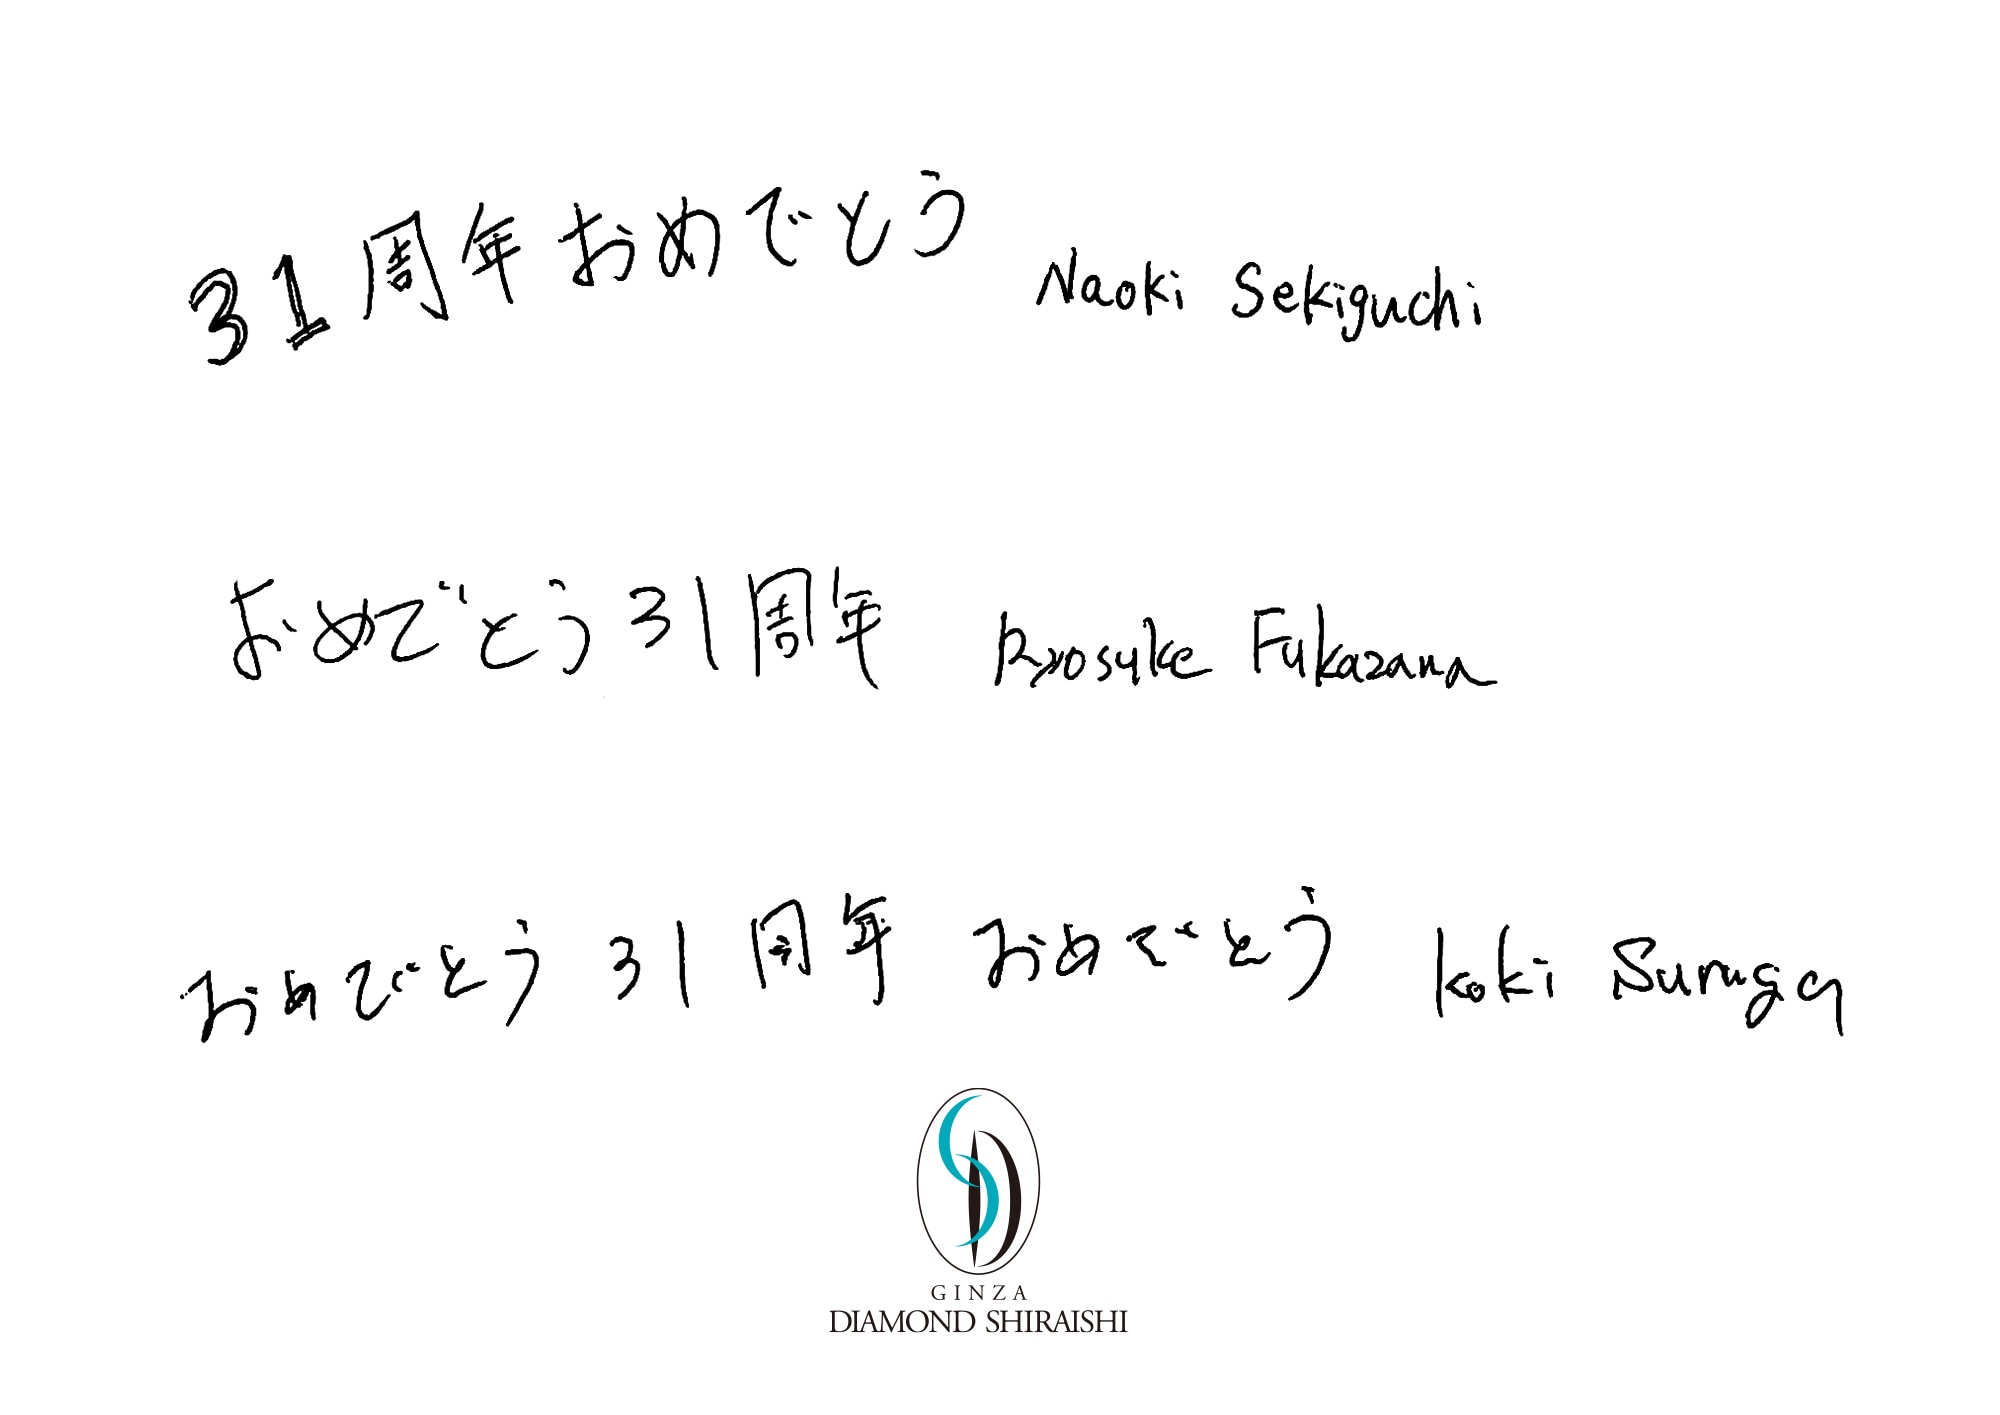 31周年おめでとう Naoki Sekiguchi
おめでとう31周年 Ryosuke Fukazawa
おめでとう 31周年 おめでとう Koki Suruga
GINZA
DIAMOND SHIRAISHI